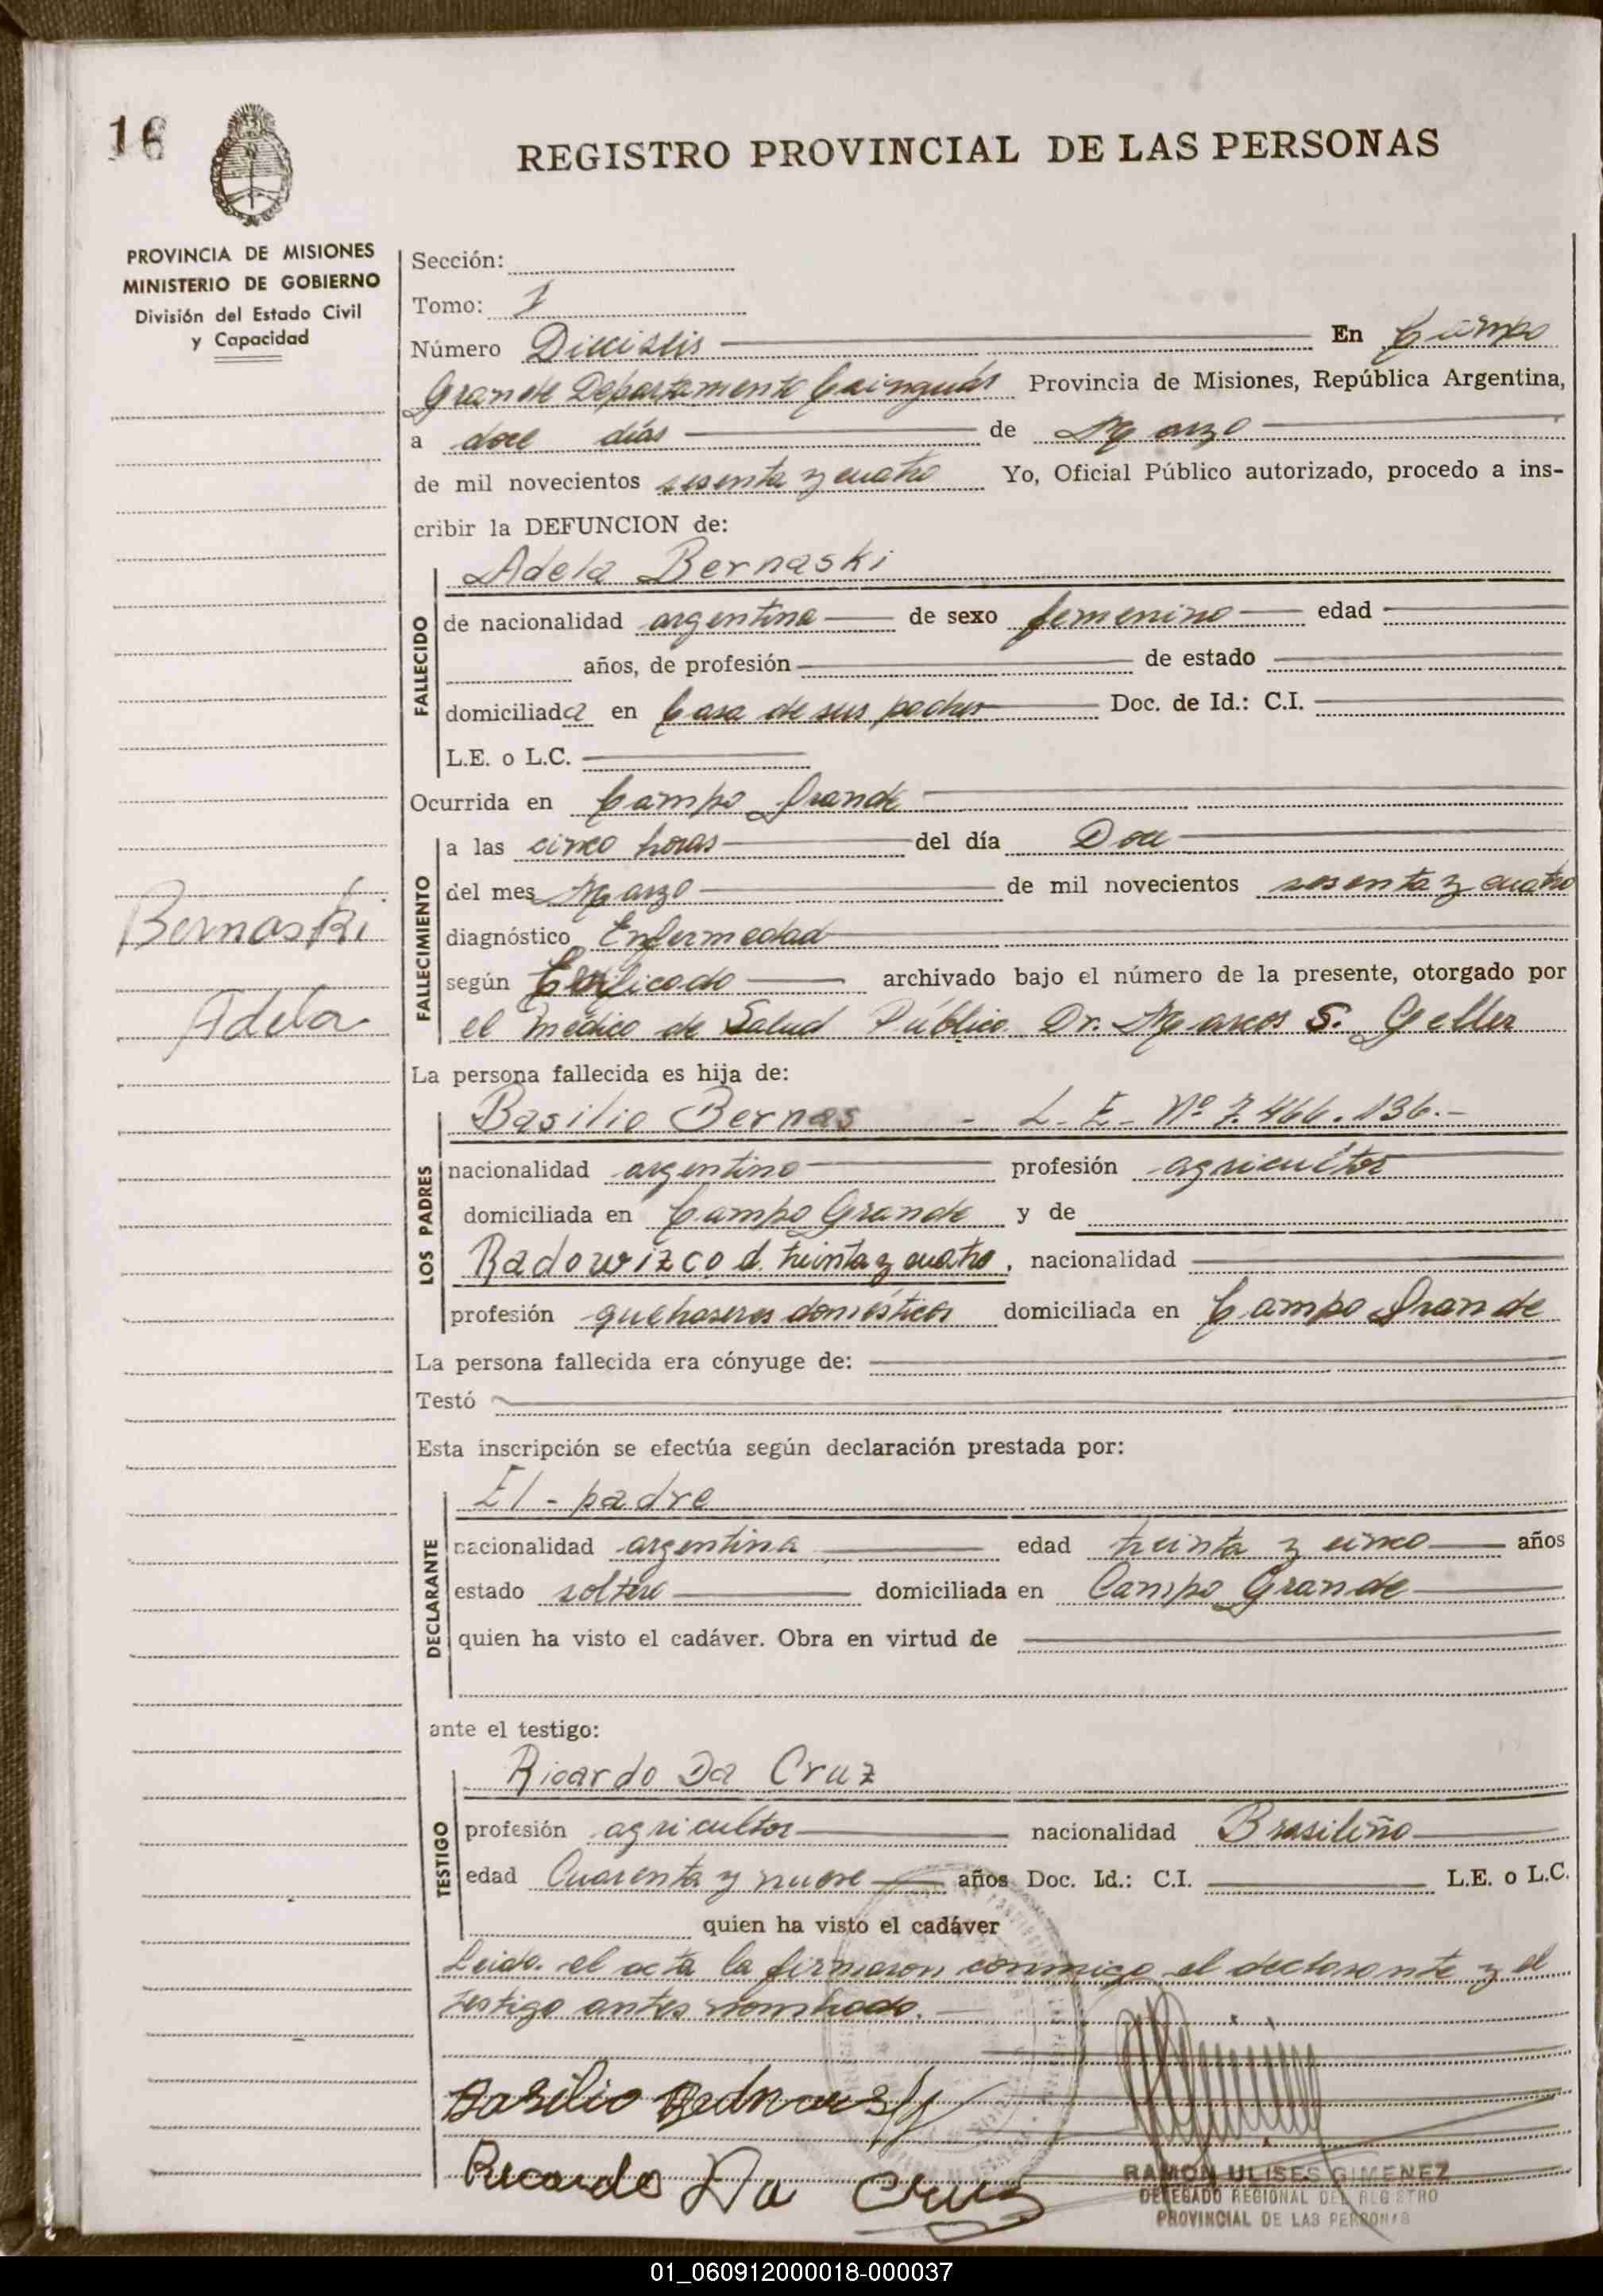 16
REGISTRO PROVINCIAL DE LAS PERSONAS
PROVINCIA DE MISIONES
MINISTERIO DE GOBIERNO
División del Estado Civil
y Capacidad
Sección:
Tomo: I
Número Dieciseis En Campo
Grande Departamento Cainguás Provincia de Misiones, República Argentina,
a doce días de Marzo
de mil novecientos sesenta y cuatro Yo, Oficial Público autorizado, procedo a ins-
cribir la DEFUNCION de:
Adela Bernaski
FALLECIDO
de nacionalidad argentina de sexo femenino edad
años, de profesión de estado
domiciliada en Casa de sus padres Doc. de Id.: C.I.
L.E. o L.C.
Ocurrida en Campo Grande
FALLECIMIENTO
a las cinco horas del día Doce
del mes Marzo de mil novecientos sesenta y cuatro
diagnóstico Enfermedad
según Certificado archivado bajo el número de la presente, otorgado por
el médico de Salud Público Dr. Marcos S. Geller
Bernaski
Adela
La persona fallecida es hija de:
LOS PADRES
Basilio Bernas - L. E. Nº 7.466.136.-
nacionalidad argentino profesión agricultor
domiciliada en Campo Grande y de
Radowizco d. treinta y cuatro, nacionalidad
profesión quehaseres domésticos domiciliada en Campo Grande
La persona fallecida era cónyuge de:
Testó
Esta inscripción se efectúa según declaración prestada por:
DECLARANTE
El - padre
nacionalidad argentina edad treinta y cinco años
estado soltero domiciliada en Campo Grande
quien ha visto el cadáver. Obra en virtud de
ante el testigo:
TESTIGO
Ricardo Da Cruz
profesión agricultor nacionalidad Brasileño
edad Cuarenta y nueve años Doc. Id.: C.I. L.E. o L.C.
quien ha visto el cadáver
Leida el acta la firmaron conmigo el declarante y el
testigo antes nombrado.
Basilio Bednarski
Ricardo Da Cruz
RAMON ULISES GIMENEZ
DELEGADO REGIONAL DEL REGISTRO
PROVINCIAL DE LAS PERSONAS
01_060912000018-000037